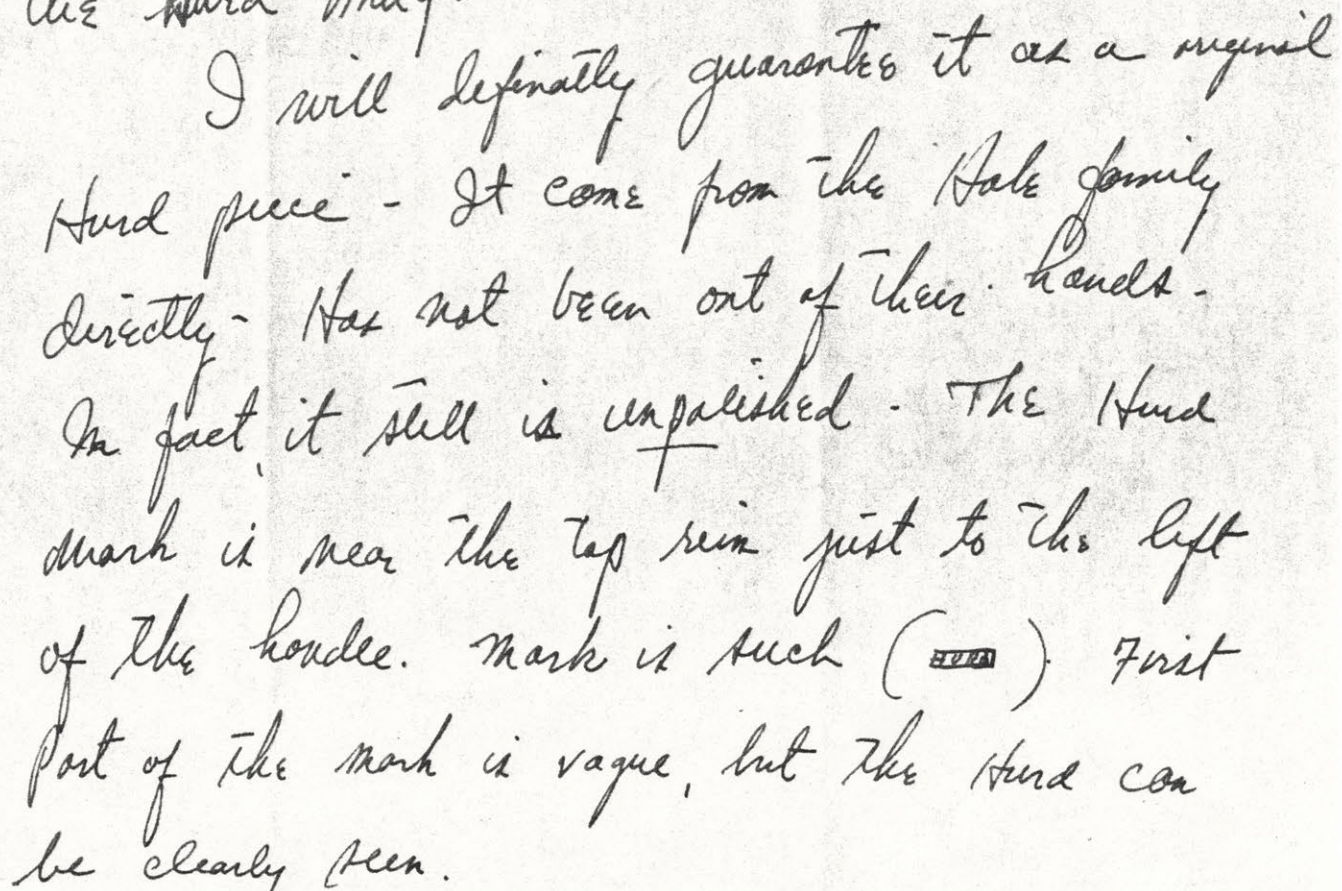 the Hurd mug.
I will definatly guarantee it as a original
Hurd piece - It come from the Hale family
directly - Has not been out of their hands -
In fact, it still is unpolished - The Hurd
mark is near the top rim just to the left
of the handle. Mark is such (HURD). First
Part of the mark is vague, but the Hurd can
be clearly seen.